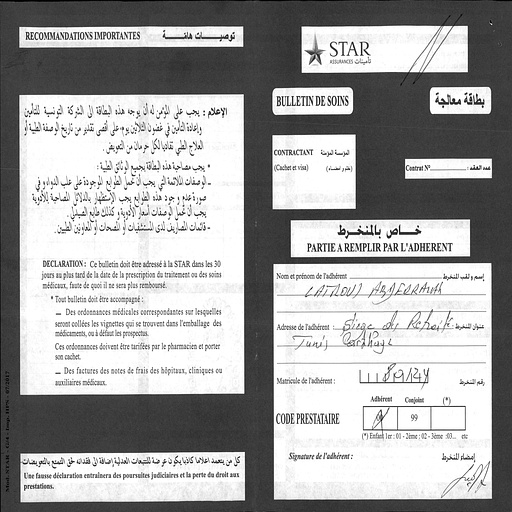 RECOMMANDATIONS IMPORTANTES
توصيــات هامــة
الإعلام : يجب على المؤمن له أن يوجه هذه البطاقة إلى الشركة التونسية للتأمين
وإعادة التأمين في غضون الثلاثين يوم، على أقصى تقدير من تاريخ الوصفة الطبية أو
العلاج الطبي تفاديا لكل حرمان من التعويض.
* يجب مصاحبة هذه البطاقة بجميع الوثائق الطبية :
ـ الوصفات الملائمة التي يجب أن تحمل الطوابع الموجودة على علب الدواء و في
صورة عدم وجود هذه الطوابع يجب الإستظهار بالدلائل المصاحبة للأدوية
يجب أن تحمل الوصفات أسعار الأدوية، وكذلك طابع الصيدلي.
ـ قائمات المصاريف لدى المستشفيات أو المصحات أو المعاونين الطبيين.
DÉCLARATION : Ce bulletin doit être adressé à la STAR dans les 30
jours au plus tard de la date de la prescription du traitement ou des soins
médicaux, faute de quoi il ne sera plus remboursé.
* Tout bulletin doit être accompagné :
— Des ordonnances médicales correspondantes sur lesquelles
seront collées les vignettes qui se trouvent dans l'emballage des
médicaments, ou à défaut les prospectus.
Ces ordonnances doivent être tarifées par le pharmacien et porter
son cachet.
— Des factures des notes de frais des hôpitaux, cliniques ou
auxiliaires médicaux.
كل من يتعمد إعلاما كاذبا يكون عرضة للتتبعات العدلية إضافة إلى فقدانه لحق التمتع بالتعويضات
Une fausse déclaration entraînera des poursuites judiciaires et la perte du droit aux
prestations.
STAR
ASSURANCES تأمينات
BULLETIN DE SOINS
بطاقة معالجة
CONTRACTANT المؤسسة المؤمنة
(Cachet et visa) (ختم و إمضاء)
Contrat N° عدد العقد
خــاص بالمنخــرط
PARTIE A REMPLIR PAR L'ADHERENT
Nom et prénom de l'adhérent إسم و لقب المنخرط
ABDERRAHM
Adresse de l'adhérent : Siège عنوان المنخرط
Tunis Carthage
Matricule de l'adhérent : رقم المنخرط
Adhérent Conjoint (*)
CODE PRESTATAIRE 99
(*) Enfant 1er : 01 - 2ème : 02 - 3ème :03... etc
Signature de l'adhérent : إمضاء المنخرط